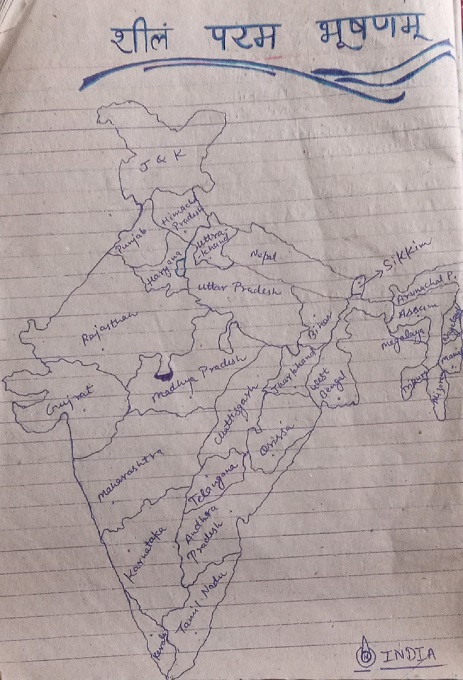 शीलं परम भूषणम्
J & K
Himachal
Pradesh
Punjab
Uttra
khand
Haryana
Nepal
→ Sikkim
Uttar Pradesh
Arunachal P.
Assam
Rajasthan
Bihar
Megalaya
Jharkhand
Madhya Pradesh
West
Bengal
Gujrat
Chattisgarh
Orissa
Maharashtra
Telangana
Andhra
Pradesh
Karnataka
Tamil Nadu
Kerala
INDIA